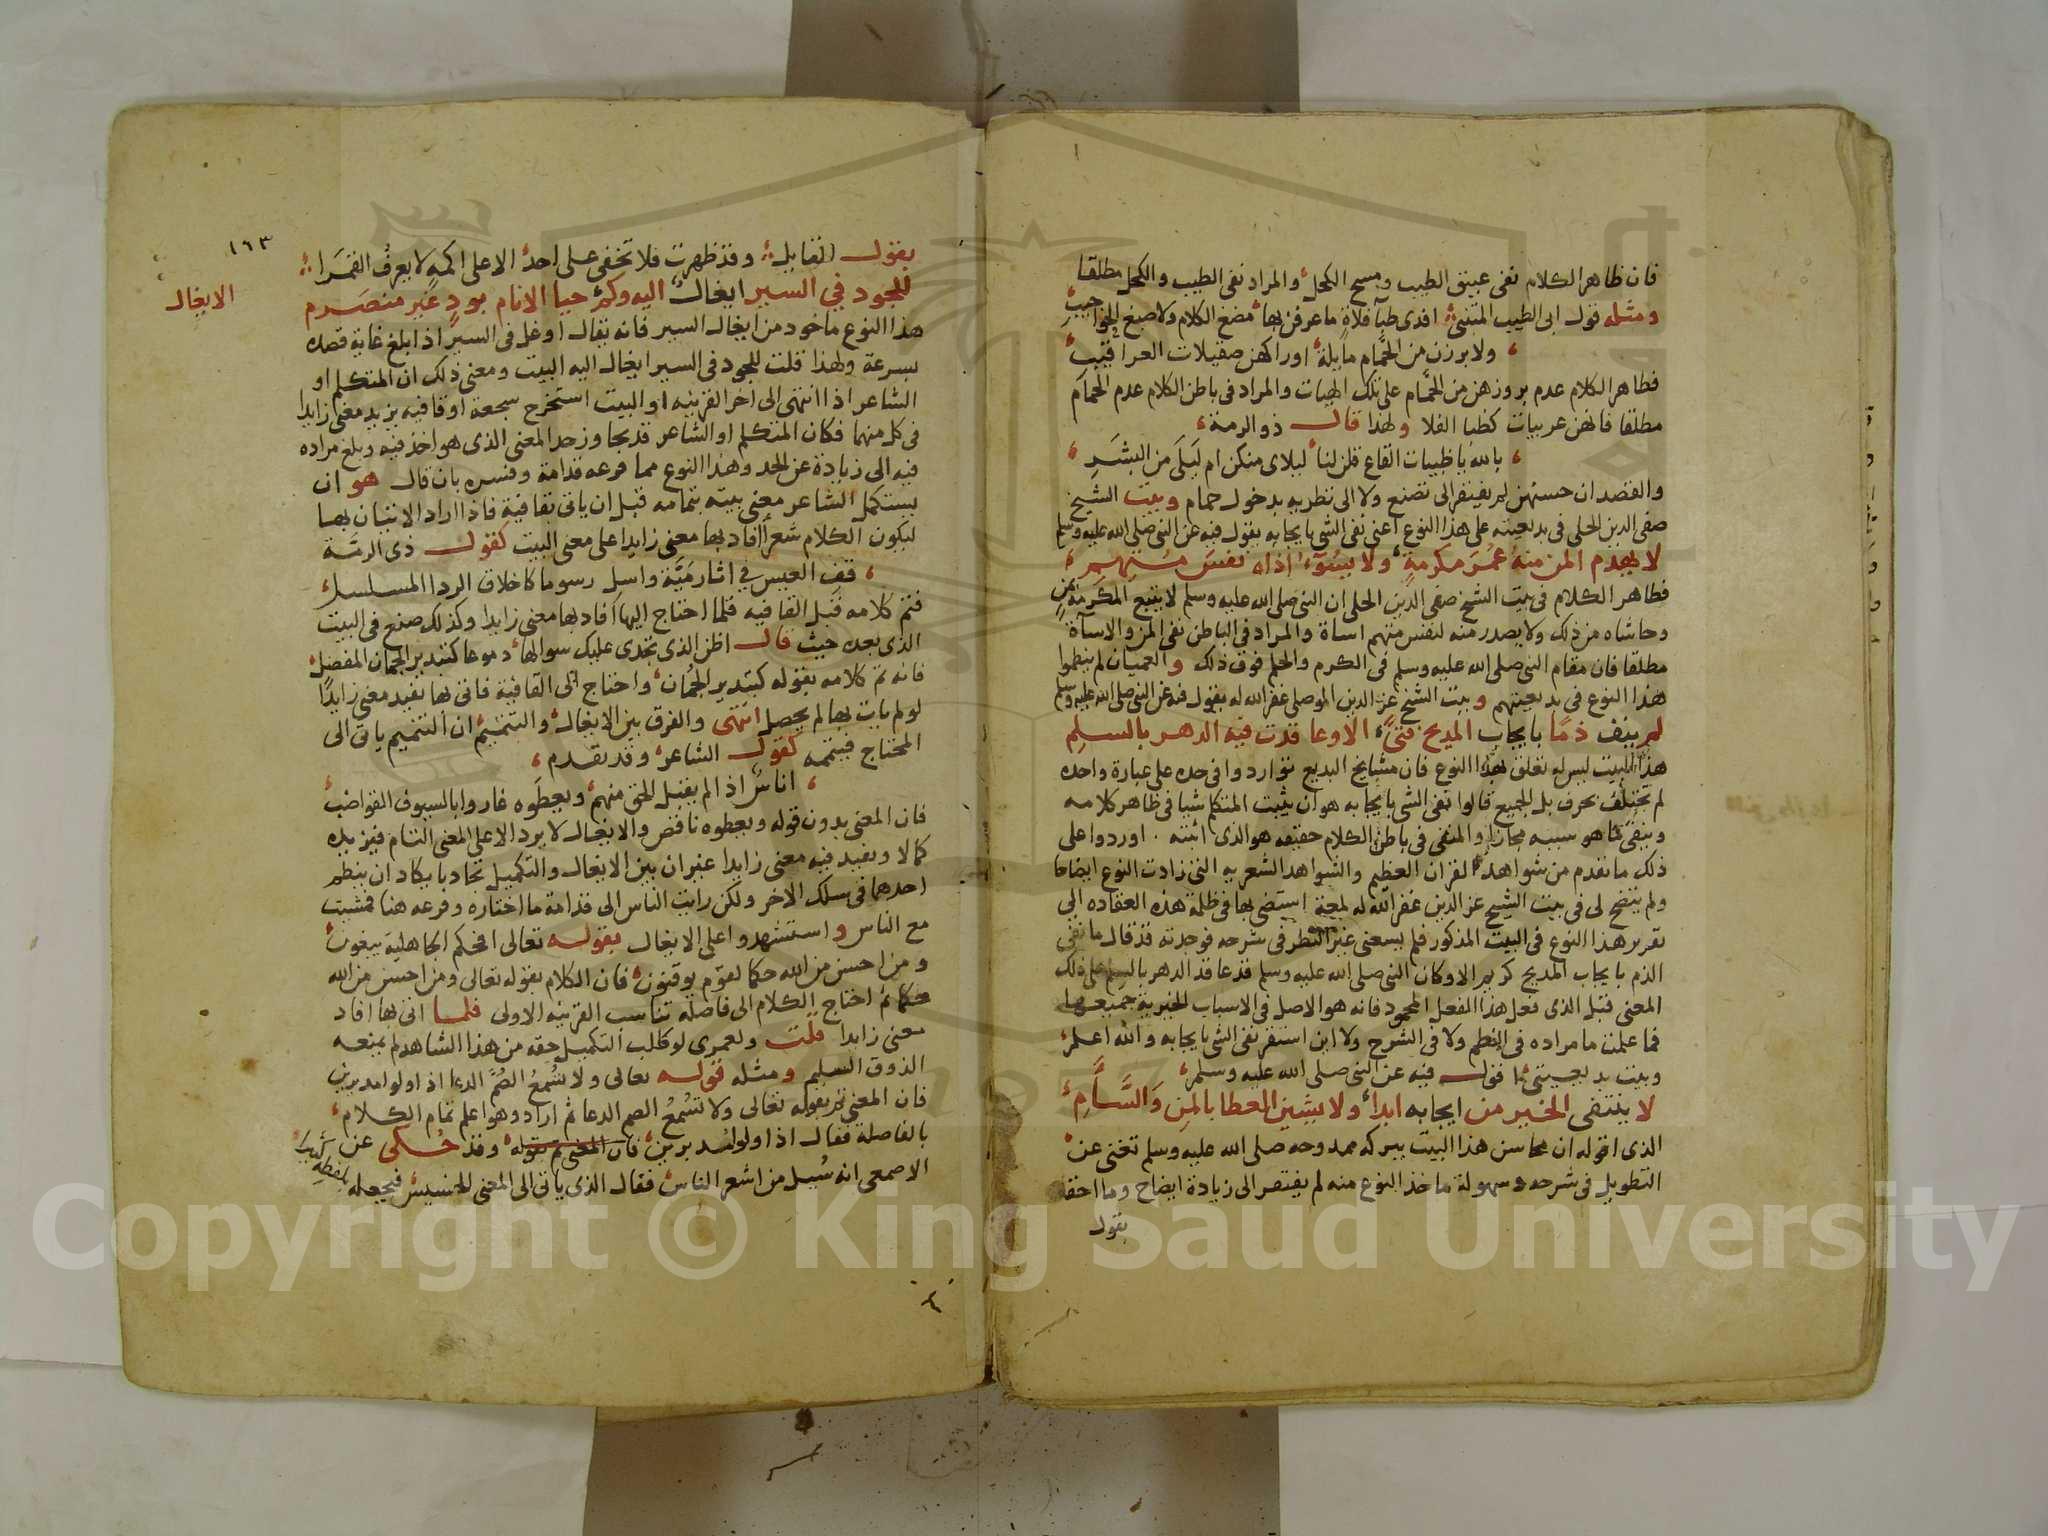 فان ظاهر الكلام نفى عبيق الطيب ومسح الكحل والمراد نفى الطيب والكحل مطلقا
ومثله قول ابى الطيب المتنبى افدى ظبآ فلاة ما عرفن بها مضغ الكلام ولا صبغ الحواجيب
ولا برزن من الحمّام مايلة اوراكهن صقيلات العراقيب
فظاهر الكلام عدم بروزهن من الحمّام على تلك الهيات والمراد فى باطن الكلام عدم الحمّام
مطلقا فانهن عربيات كظبا الفلا ولهذا قال ذو الرمة
بالله يا ظبيات القاع قلن لنا ليلاى منكن ام ليلى من البشر
والقصد ان حسنهن لم يفتقر الى تصنع ولا الى تطريه بدخول حمام وبيت الشيخ
صفى الدين الحلى فى بديعيته على هذا النوع اعنى نفى الشى بايجابه يقول فيه عن النبى صلى الله عليه وسلم
لا يهدم المن منه عمر مكرمة ولا يسوء اذاه نفس متهم
فظاهر الكلام فى بيت الشيخ صفى الدين الحلى ان النبى صلى الله عليه وسلم لا يتبع المكرمة بمن
وحاشاه من ذلك ولا يصدر منه لنفس متهم اساة والمراد فى الباطن نفى المن والاسآة
مطلقا فان مقام النبى صلى الله عليه وسلم فى الكرم والحلم فوق ذلك والعميان لم ينظموا
هذا النوع فى بديعيتهم وبيت الشيخ عز الدين الموصلى غفر الله له يقول فيه عن النبى صلى الله عليه وسلم
لم ينف ذمًا بايجاب المديح فتىً الا وعا قدت فيه الدهر بالسلم
هذا البيت ليس له تعلق بهذا النوع فان مشايخ البديع تواردوا فى حده على عبارة واحده
لم يختلف بحرف بل الجميع قالوا نفى الشى بايجابه هو ان يثبت المتكلم شيا فى ظاهر كلامه
وينفى ما هو سببه مجازا والمنفى فى باطن الكلام حقيقه هو الذى اثبته . اوردوا على
ذلك ما تقدم من شواهد القران العظيم والشواهد الشعريه التى زادت النوع ايضاحا
ولم يتضح لى فى بيت الشيخ عز الدين غفر الله له لمعة استضى بها فى ظلمة هذه العقاده الى
تقرير هذا النوع فى البيت المذكور فلم يسعنى غير النظر فى شرحه فوجدته قد قال ما نفى
الذم بايجاب المديح كريم الا وكان النبى صلى الله عليه وسلم قد عاقد الدهر بالسلم على ذلك
المعنى قبل الذى فعل هذا الفعل المحمود فانه هو الاصل فى الاسباب الخيرية جميعها
فما علمت ما مراده فى النظم ولا فى الشرح ولا اين استقر نفى الشى بايجابه والله اعلم
وبيت بديعيتى ما قوله فيه عن النبى صلى الله عليه وسلم
لا ينتفى الخير من ايجابه ابدا ولا يشين العطا بالمن والسّأم
الذى اقوله ان محاسن هذا البيت ببركه ممدوحه صلى الله عليه وسلم تغنى عن
التطويل فى شرحه وسهولة ماخذ النوع منه لم يفتقر الى زيادة ايضاح وما احقه
بقول
١٦٣
بقول القايل وقد ظهرت فلا تخفى على احد الا على اكمه لا يعرف القمرا
الايغال
للجود فى السير ايغال اليه وكم حيا الانام بود غير منصرم
هذا النوع ماخود من ايغال السير فانه يقال اوغل فى السير اذا بلغ غاية قصده
بسرعة ولهذا قلت للجود فى السير ايغال اليه البيت ومعنى ذلك ان المتكلم او
الشاعر اذا انتهى الى اخر القرينه او البيت استخرج سجعة او قافيه يزيد معنى زايدا
فى كل منهما فكان المتكلم او الشاعر قد تجاوز حد المعنى الذى هو اخذ فيه وبلغ مراده
فيه الى زيادة عن الحد وهذا النوع مما فرعه قدامة وفسره بان قال هو ان
يستكمل الشاعر معنى بيته بتمامه قبل ان ياتى بقافية فاذا اراد الاتيان بها
ليكون الكلام شعرا افاد بها معنى زايدا على معنى البيت كقول ذى الرمّة
قف العيس فى اثار ميّة واسل رسوما كاخلاق الردا المسلسل
فتم كلامه قبل القافيه فلما احتاج اليها افاد بها معنى زايدا وكذلك صنع فى البيت
الذى بعده حيث قال اظن الذى تجدى عليك سوالها دموعا كتبديد الجمان المفصل
فانه تم كلامه بقوله كتبديد الجمان واحتاج الى القافية فاتى بها تفيد معنى زايدًا
لو لم يات بها لم يحصل انتهى والفرق بين الايغال والتتميم ان التتميم ياتى الى
المحتاج فيتممه كقول الشاعر وقد تقدم
اناسٌ اذا لم يقبل الحق منهم ويعطوه غاروا بالسيوف القواضب
فان المعنى بدون قوله ويعطوه ناقص والايغال لا يرد الا على المعنى التام فيزيده
كمالا ويفيد فيه معنى زايدا غير ان بين الايغال والتكميل تجاذبا يكاد ان ينظم
احدهما فى سلك الاخر ولكن رايت الناس الى قدامة ما اختاره وفرعه هنا فمشيت
مع الناس واستشهدوا على الايغال بقوله تعالى افحكم الجاهلية يبغون
ومن احسن من الله حكما لقوم يوقنون فان الكلام بقوله تعالى ومن احسن من الله
حكما ثم احتاج الكلام الى فاصلة تناسب القرينه الاولى فلما اتى بها افاد
معنى زايدا قلت ولعمرى لو طلب التكميل حقه من هذا الشاهد لم يمنعه
الذوق السليم ومثله قوله تعالى ولا تُسْمعُ الصُّمّ الدعا اذا ولوا مدبرين
فان المعنى تم بقوله تعالى ولا تسمع الصم الدعا ثم اراد وهو اعلم تمام الكلام
بالفاصلة فقال اذا ولوا مدبرين فان المعنى تم بقوله وقد حُكى عن
الاصمعى انه سُيل من اشعر الناس فقال الذى ياتى الى المعنى الخسيس فيجعله بلفظه كبيرا